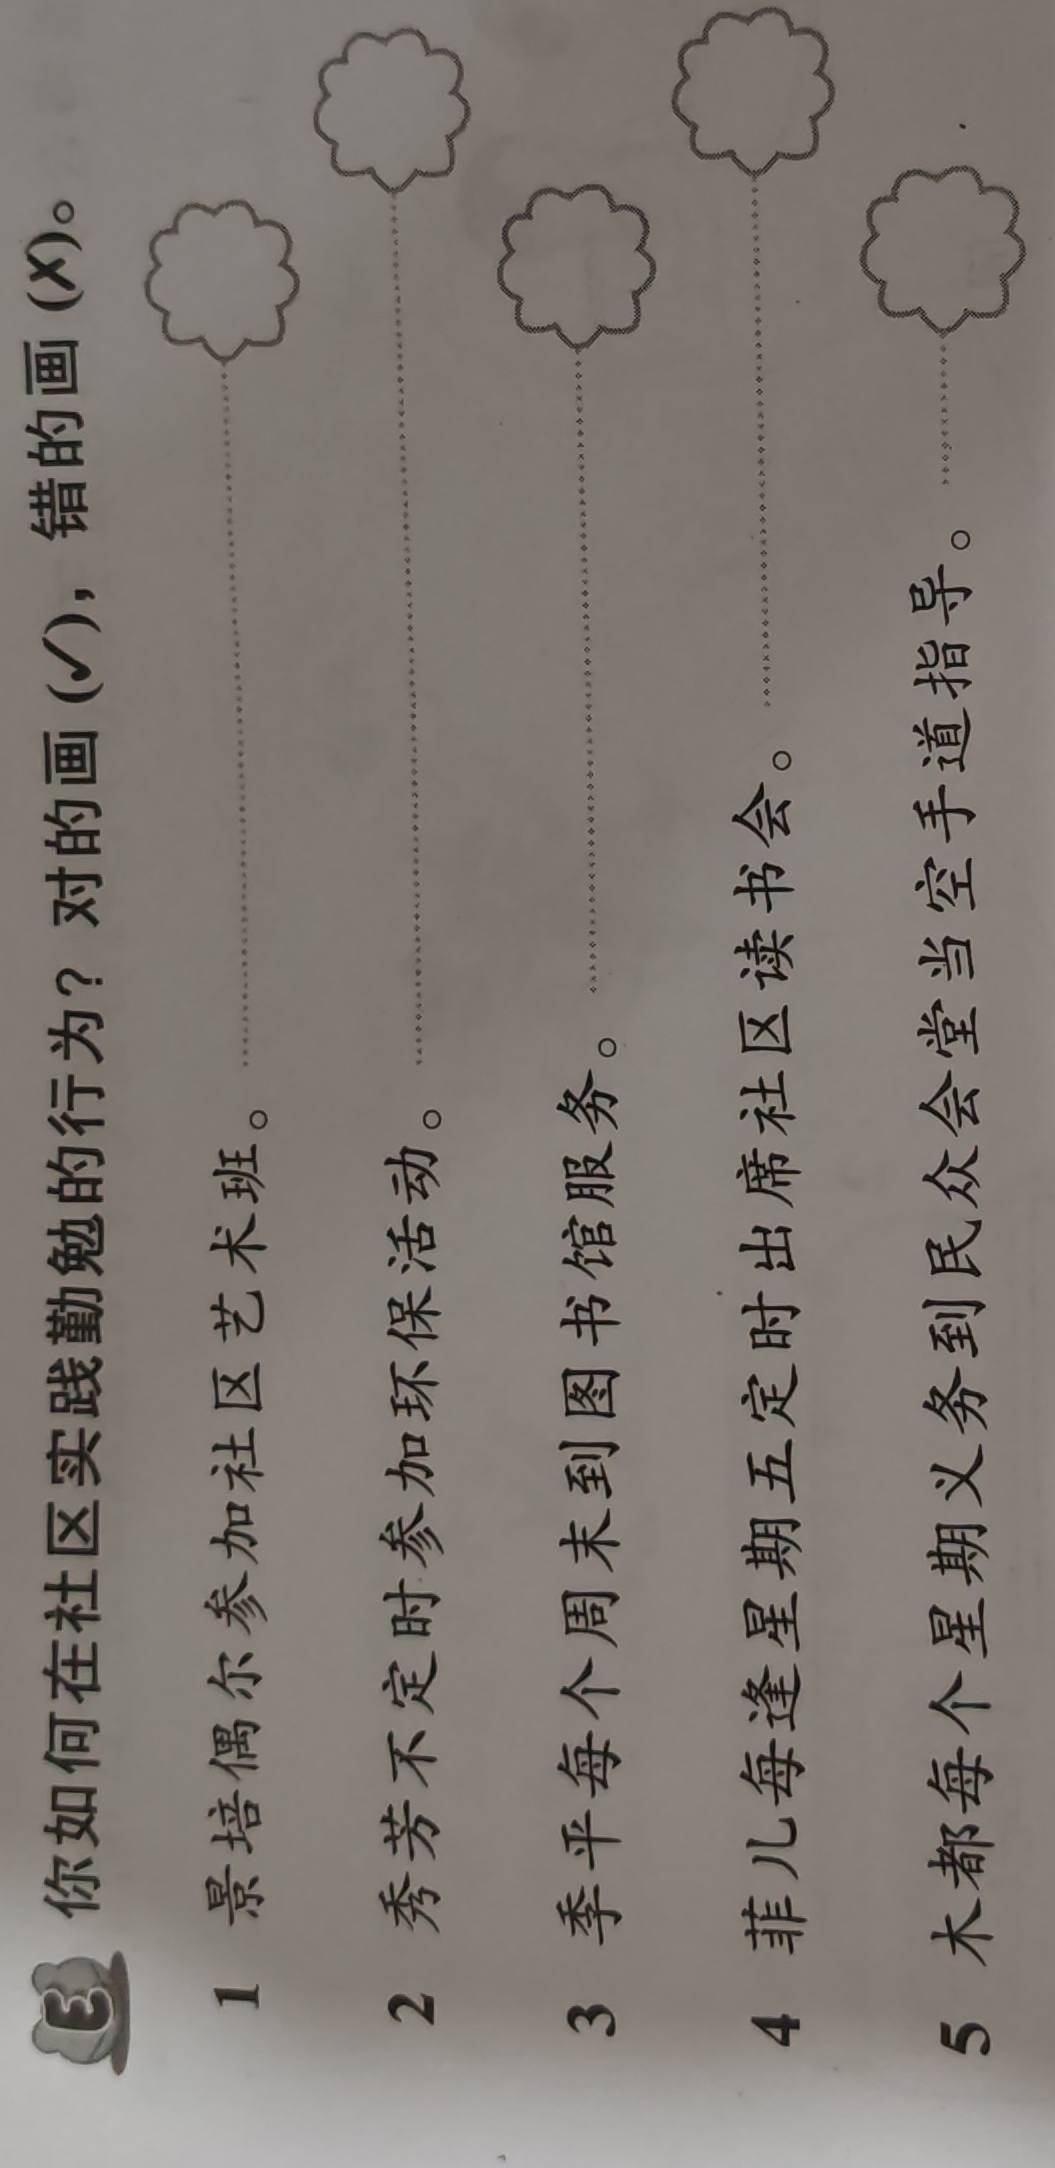 E 你如何在社区实践勤勉的行为？对的画 (✓)，错的画 (✗)。
1 景培偶尔参加社区艺术班。
2 秀芳不定时参加环保活动。
3 季平每个周末到图书馆服务。
4 菲儿每逢星期五定时出席社区读书会。
5 木都每个星期义务到民众会堂当空手道指导。